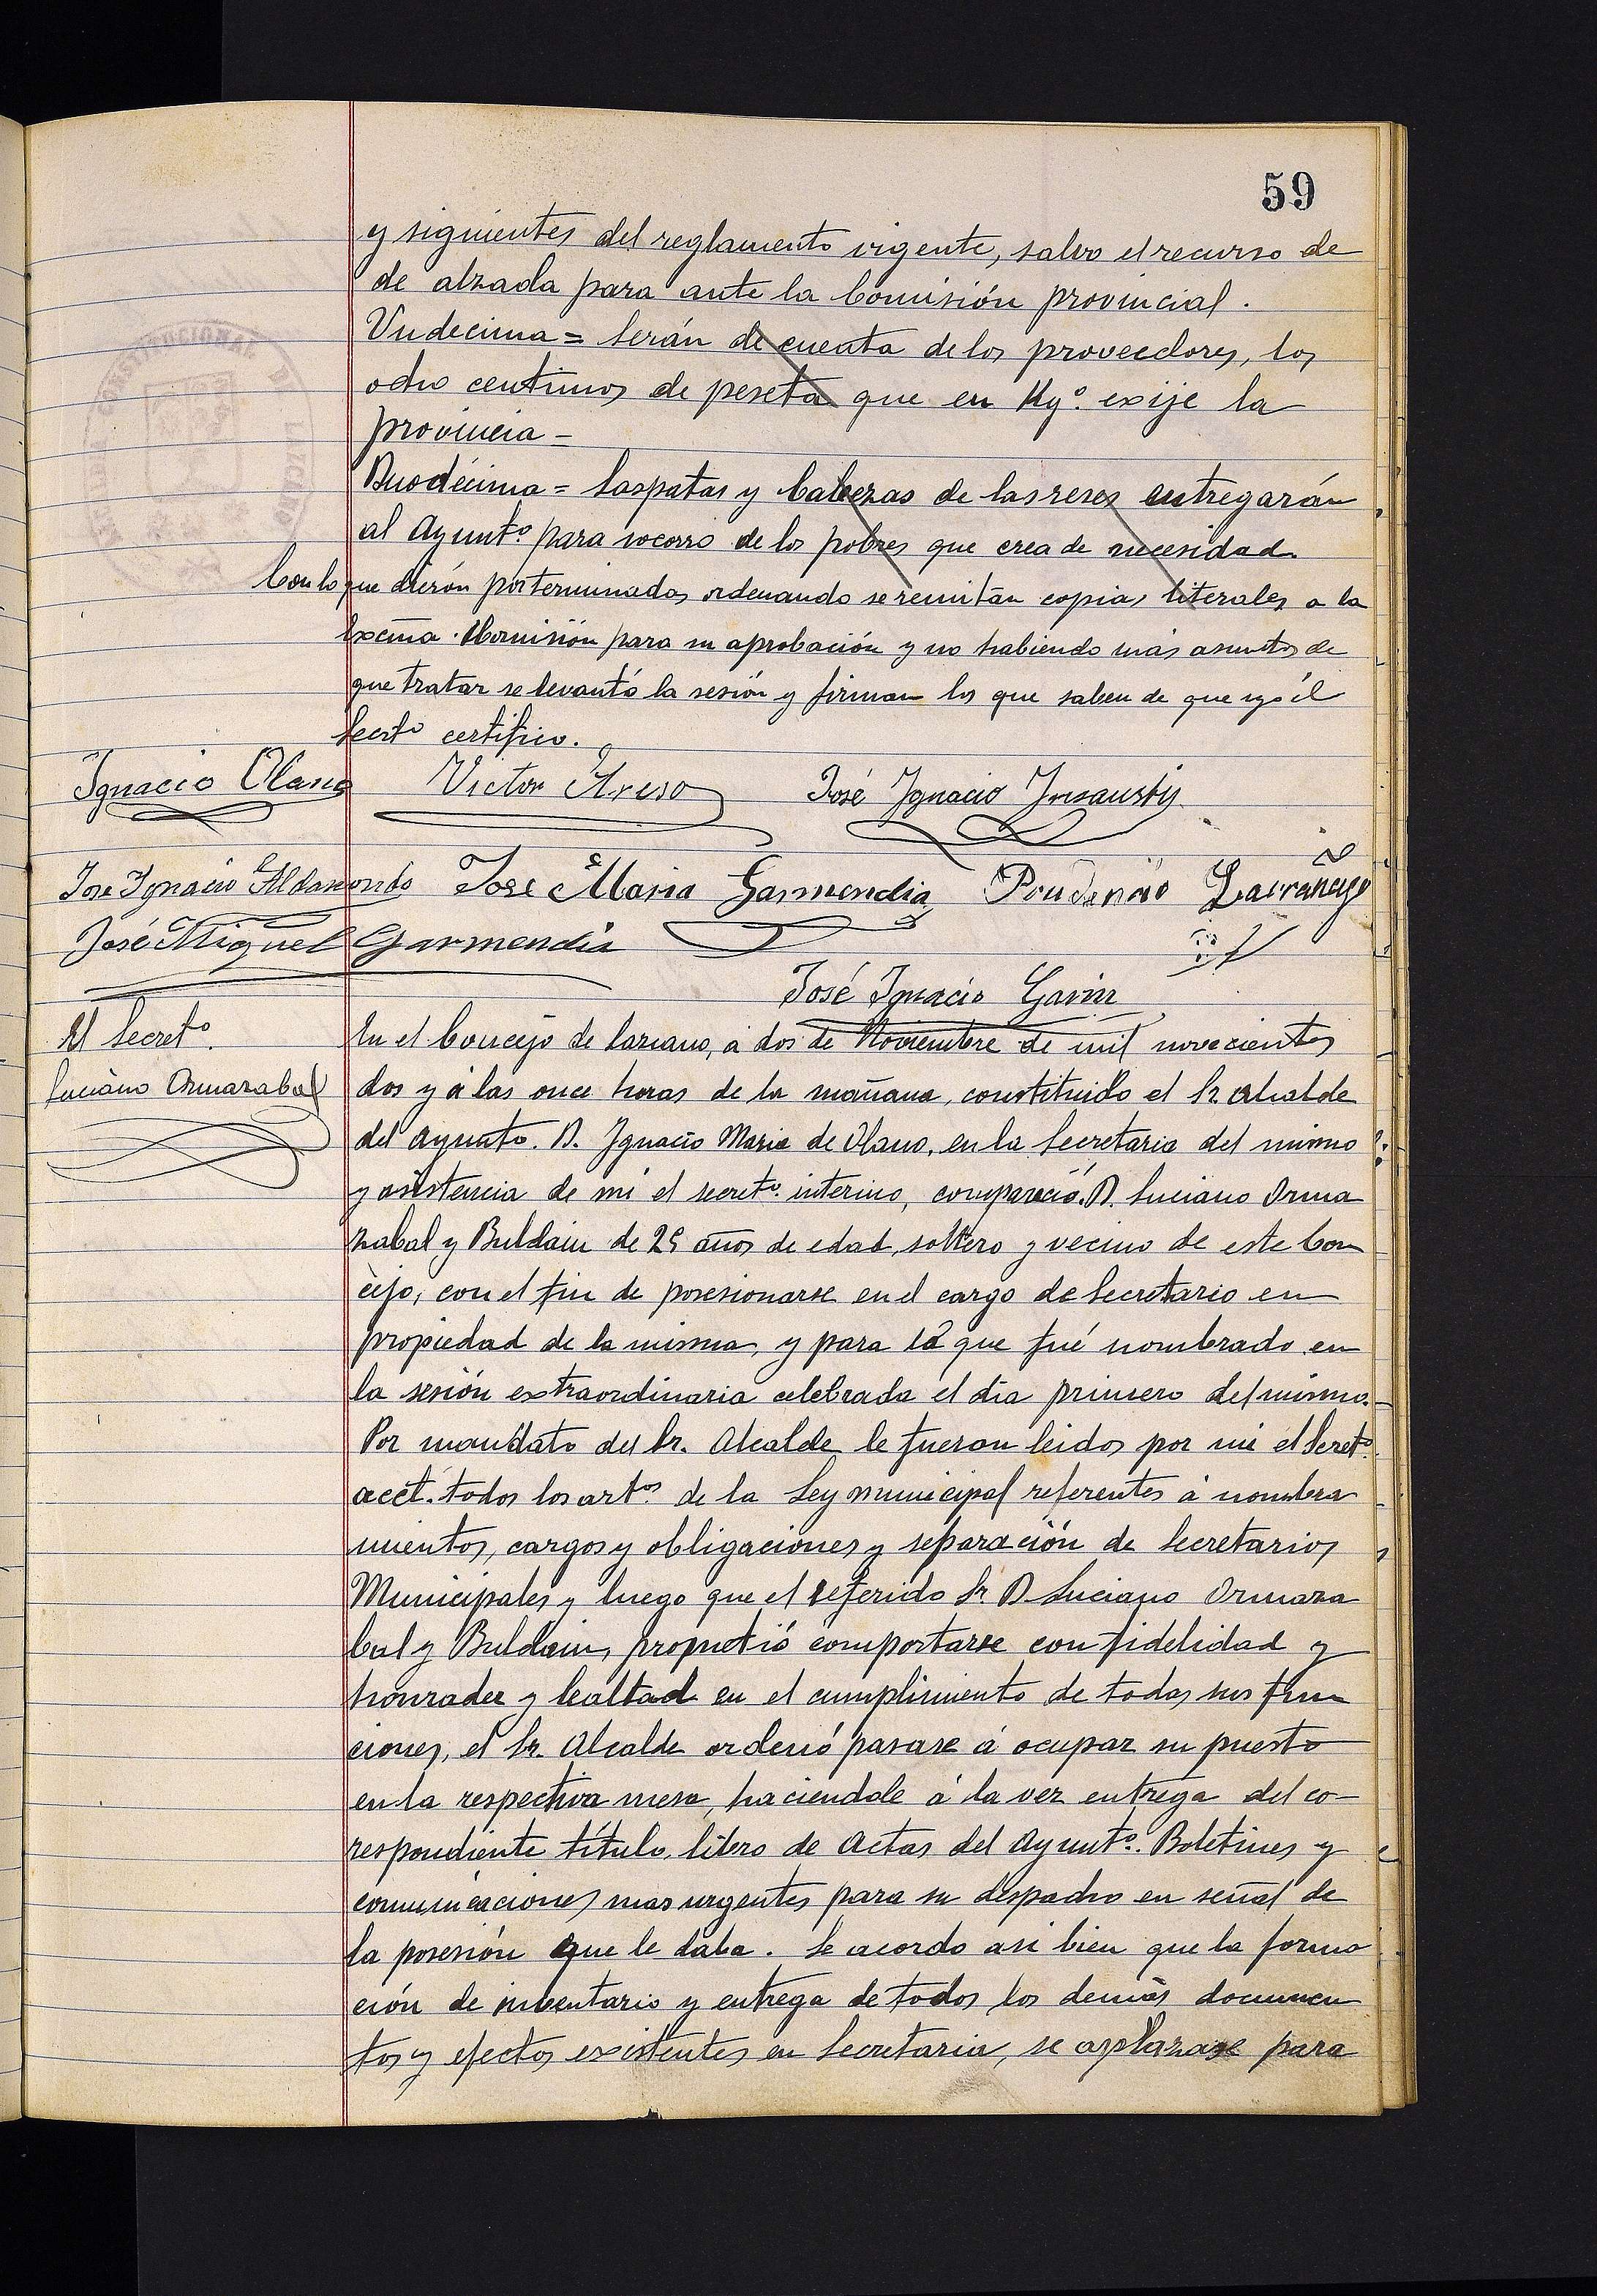 59
y siguientes del reglamento vigente, salvo el recurso de
de alzada para ante la Comisión provincial.
Undecima = Serán de cuenta de los proveedores, los
ocho centimos de peseta que en Kgº. exije la
provincia =
Duodécima = Las patas y Cabezas de las reses entregarán
al Ayuntº para socorro de los pobres que crea de necesidad
Con lo que dierón por terminados ordenando se remitan copias literales a la
Excma. Comisión para su aprobación y no habiendo más asuntos de
que tratar se levantó la sesión y firman los que saben de que yo él
Secrtº certifico.
Ignacio Olano Victor Areso José Ignacio Insausty
Jose Ignacio Aldasorondo Jose Maria Garmendia Prudencio Larrañaga
José Miguel Garmendia
José Ignacio Garin
El Secretº.
Luciano Ormazabal
En el Concejo de Lazcano, á dos de Noviembre de mil novecientos
dos y á las once horas de la mañana, constituido el Sr Alcalde
del Ayuntto. D. Ignacio Maria de Olano, en la Secretaria del mismo
y asistencia de mi el secretº. interino, compareció D. Luciano Orma
zabal y Buldain de 25 años de edad, soltero y vecino de este Con
cejo, con el fin de posesionarse en el cargo de Secretario en
propiedad de la misma, y para lo que fué nombrado en
la sesión extraordinaria celebrada el dia primero del mismo.
Por mandato del Sr. Alcalde le fueron leidos por mi el Secretº
acct. todos los artos. de la Ley municipal referentes á nombra
mientos, cargos y obligaciones y separación de Secretarios
Municipales y luego que el referido Sr. D. Luciano Ormaza
bal y Buldain, prometió comportarse con fidelidad y
honradez y lealtad en el cumplimiento de todas sus fun
ciones, el Sr. Alcalde ordenó pasase á ocupar su puesto
en la respectiva mesa, haciendole á la vez entrega del co-
respondiente título, libro de Actas del Ayuntº. Boletines y
comunicaciones mas urgentes para su despacho en señal de
la posesión que le daba. Se acordo asi bien que la forma
ción de inbentario y entrega de todos los demás documen
tos y efectos existentes en Secretaria, se aplazase para